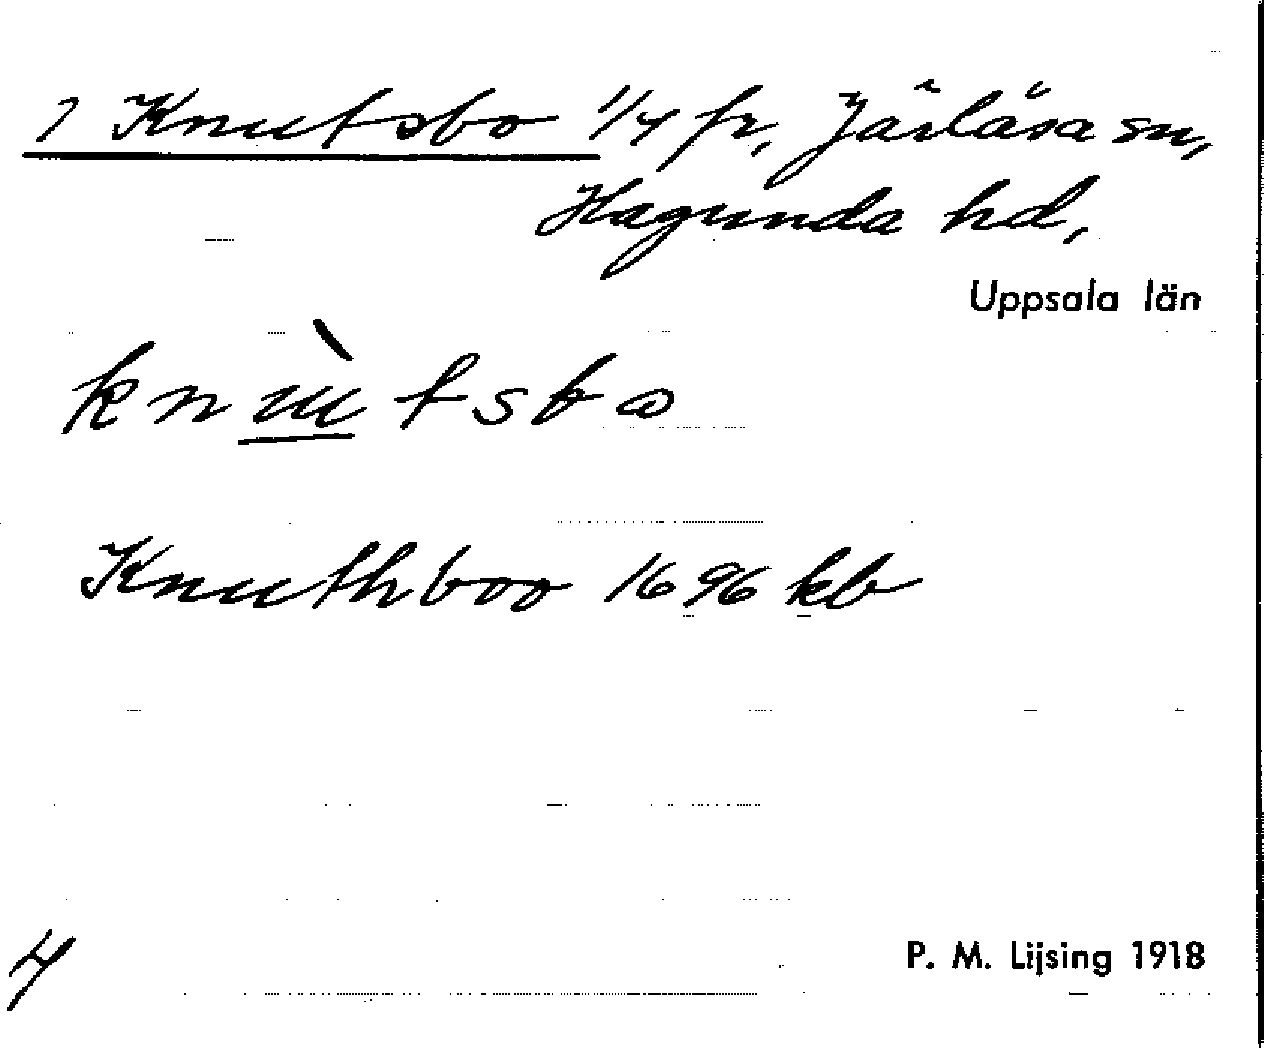 1 Knutsbo 1/4 fr, Järlåsa sn,
Hagunda hd,
Uppsala län
knùtsbω
Knuthboo 1696 kb
4
P. M. Lijsing 1918